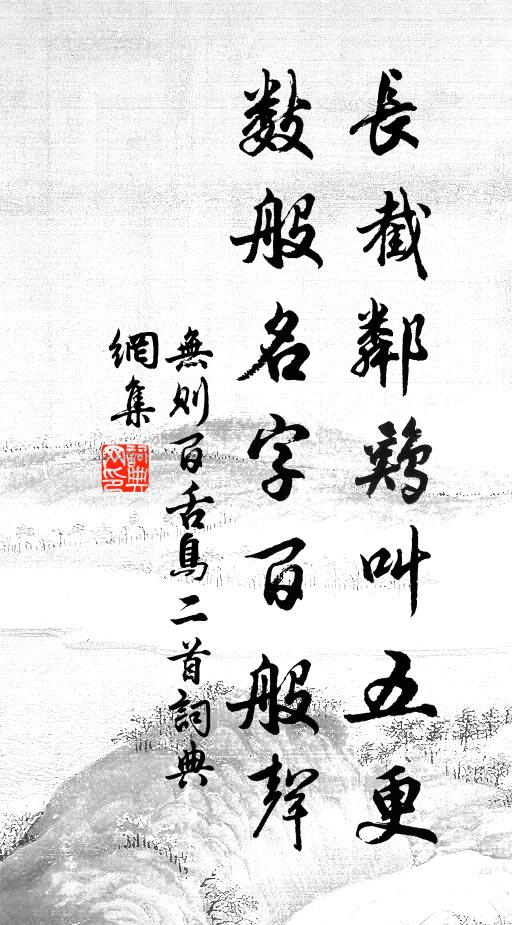 長截鄰鷄叫五更
數般名字百般聲
無則百舌鳥二首詞典
網集
詞典
网印